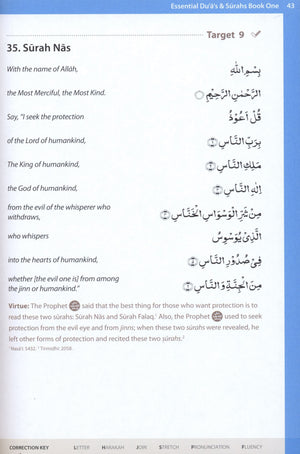 Essential Du'ā's & Sūrahs Book One 43
Target 9
35. Sūrah Nās
With the name of Allāh,
بِسْمِ اللّٰهِ
the Most Merciful, the Most Kind.
الرَّحْمٰنِ الرَّحِيْمِ
Say, "I seek the protection
قُلْ اَعُوْذُ
of the Lord of humankind,
بِرَبِّ النَّاسِ
The King of humankind,
مَلِكِ النَّاسِ
the God of humankind,
اِلٰهِ النَّاسِ
from the evil of the whisperer who
withdraws,
مِنْ شَرِّ الْوَسْوَاسِ الْخَنَّاسِ
who whispers
الَّذِيْ يُوَسْوِسُ
into the hearts of humankind,
فِيْ صُدُوْرِ النَّاسِ
whether [the evil one is] from among
the jinn or humankind."
مِنَ الْجِنَّةِ وَالنَّاسِ
Virtue: The Prophet said that the best thing for those who want protection is to
read these two sūrahs: Sūrah Nās and Sūrah Falaq.¹ Also, the Prophet used to seek
protection from the evil eye and from jinns; when these two sūrahs were revealed, he
left other forms of protection and recited these two sūrahs.²
¹ Nasā'ī: 5432. ² Tirmidhī: 2058.
CORRECTION KEY LETTER HARAKAH JOIN STRETCH PRONUNCIATION FLUENCY